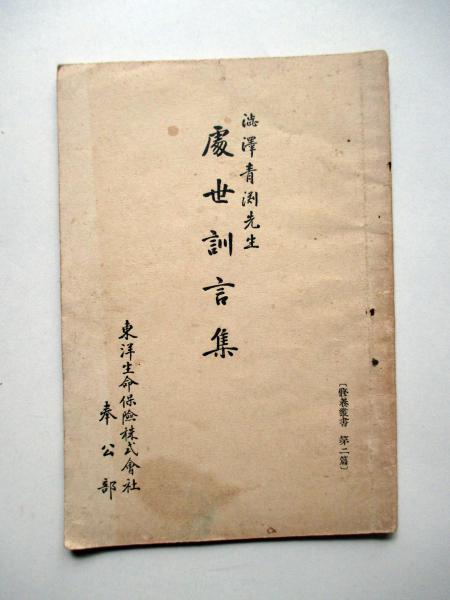 〔修養叢書 第二篇〕
澁澤青渕先生
處世訓言集
東洋生命保險株式會社
奉公部